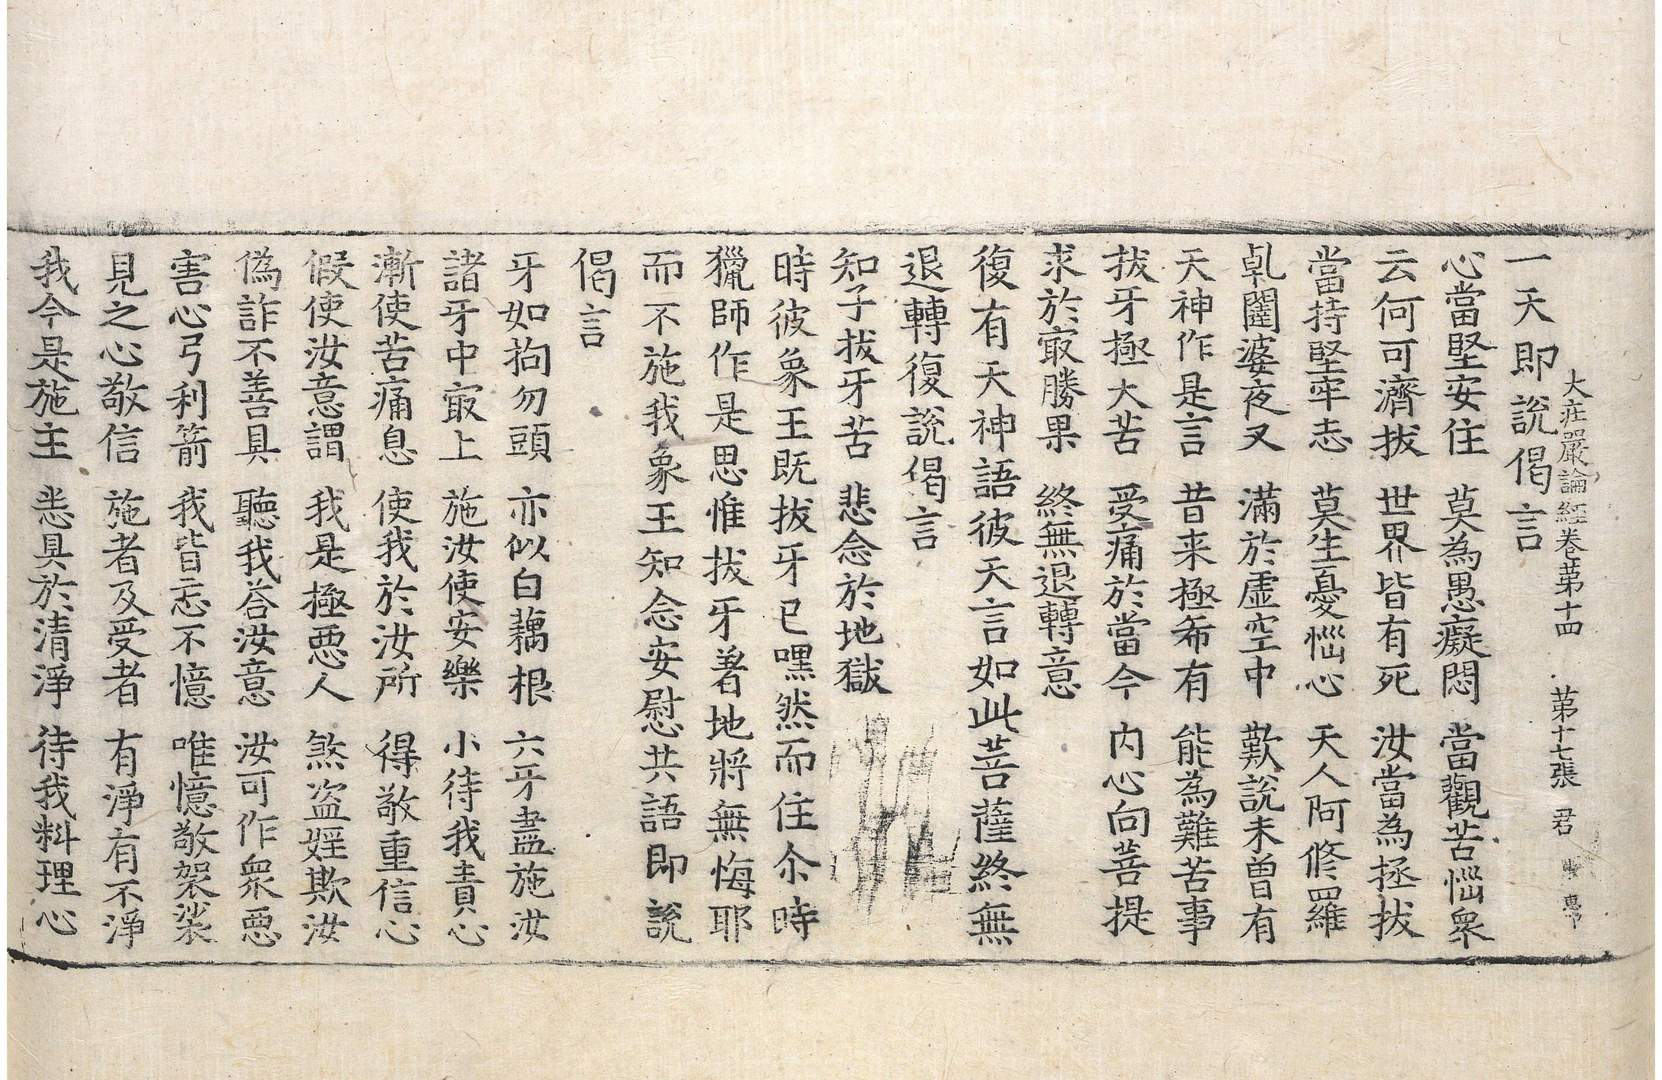 大莊嚴論經卷苐十四 苐十七張 君
一天即說偈言
心當堅安住 莫為愚癡悶 當觀苦惱衆
云何可濟拔 世界皆有死 汝當為拯拔
當持堅牢志 莫生憂惱心 天人阿修羅
乹闥婆夜叉 滿於虛空中 歎說未曾有
天神作是言 昔来極希有 能為難苦事
拔牙極大苦 受痛於當今 内心向菩提
求於㝡勝果 終無退轉意
復有天神語彼天言如此菩薩終無
退轉復說偈言
知子拔牙苦 悲念於地獄
時彼象王既拔牙已嘿然而住尒時
獵師作是思惟拔牙著地將無悔耶
而不施我象王知念安慰共語即說
偈言
牙如拘勿頭 亦似白藕根 六牙盡施汝
諸牙中㝡上 施汝使安樂 小待我責心
漸使苦痛息 使我於汝所 得敬重信心
假使汝意謂 我是極惡人 煞盜婬欺汝
偽詐不善具 聽我荅汝意 汝可作衆惡
害心弓利箭 我皆忘不憶 唯憶敬袈裟
見之心敬信 施者及受者 有淨有不淨
我今是施主 悉具於清淨 待我料理心